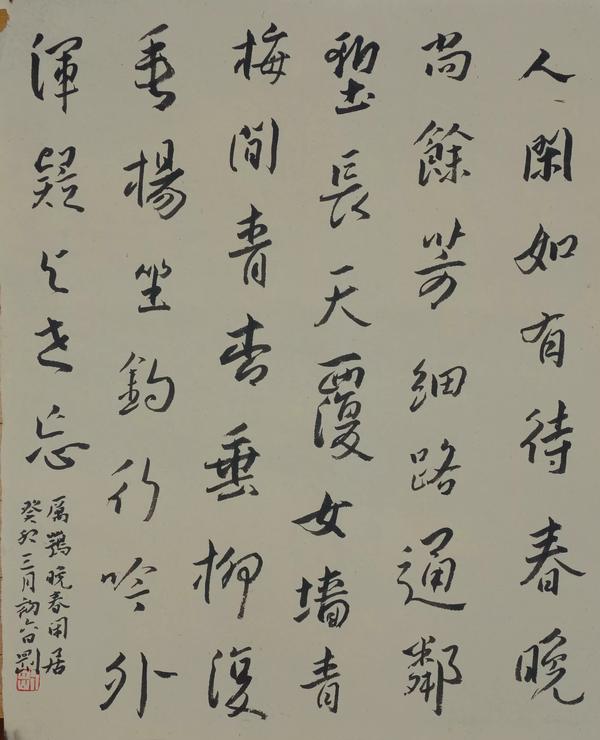 人閑如有待春晚
尚餘芳細路通鄰
墅長天覆女墻青
梅間青杏垂柳復
垂楊坐釣行吟外
渾疑与世忘
厲鶚晚春閑居
癸卯三月初六日剛